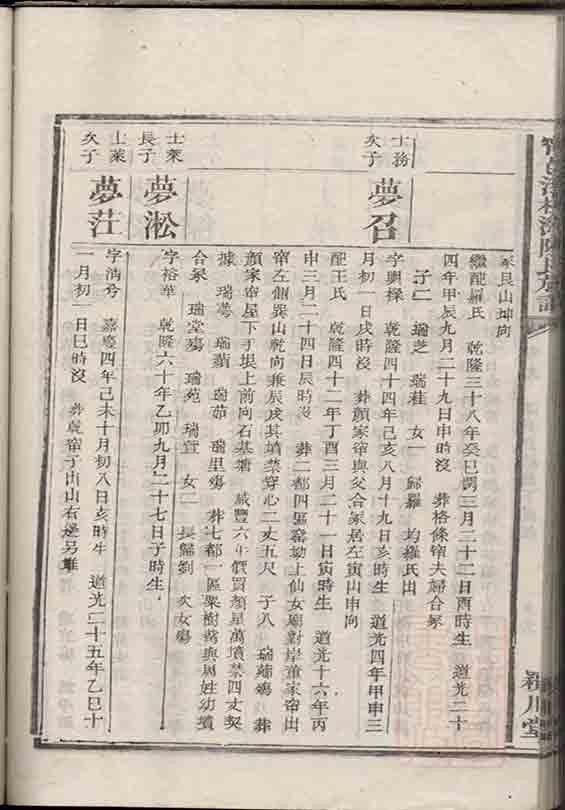 潁川堂
冢艮山坤向
繼配羅氏 乾隆三十八年癸巳閏三月二十二日酉時生 道光二十
四年甲辰九月二十九日申時沒 葬格條窑夫婦合冢
子二 瑞芝 瑞桂 女一 歸羅 均羅氏出
士務
次子
夢召
字興樑 乾隆四十四年己亥八月十九日亥時生 道光四年甲申三
月初一日戌時沒 葬顏家窑與父合冢居左寅山申向
配王氏 乾隆四十二年丁酉三月二十一日寅時生 道光十六年丙
申三月二十四日辰時沒 葬二都四區窑坳上仙女廟對岸董家窑出
窑左側巽山乾向兼辰戌其墳禁穿心二丈五尺 子八 瑞 殤 葬
顏家窑屋下手垠上前向石基塘 咸豐六年價買顏星萬墳禁四丈契
據 瑞蕚 瑞蘋 瑞茆 瑞里殤 葬七都一區 樹蔦與周姓幼墳
合冢 瑞堂殤 瑞苑 瑞萱 女二 長歸劉 次女殤
士萊
長子
夢淞
字裕華 乾隆六十年乙卯九月二十七日子時生
士萊
次子
夢茳
字滴兮 嘉慶四年己未十月初八日亥時生 道光二十五年乙巳十
一月初一日巳時沒 葬乾窑子出山右邊另堆